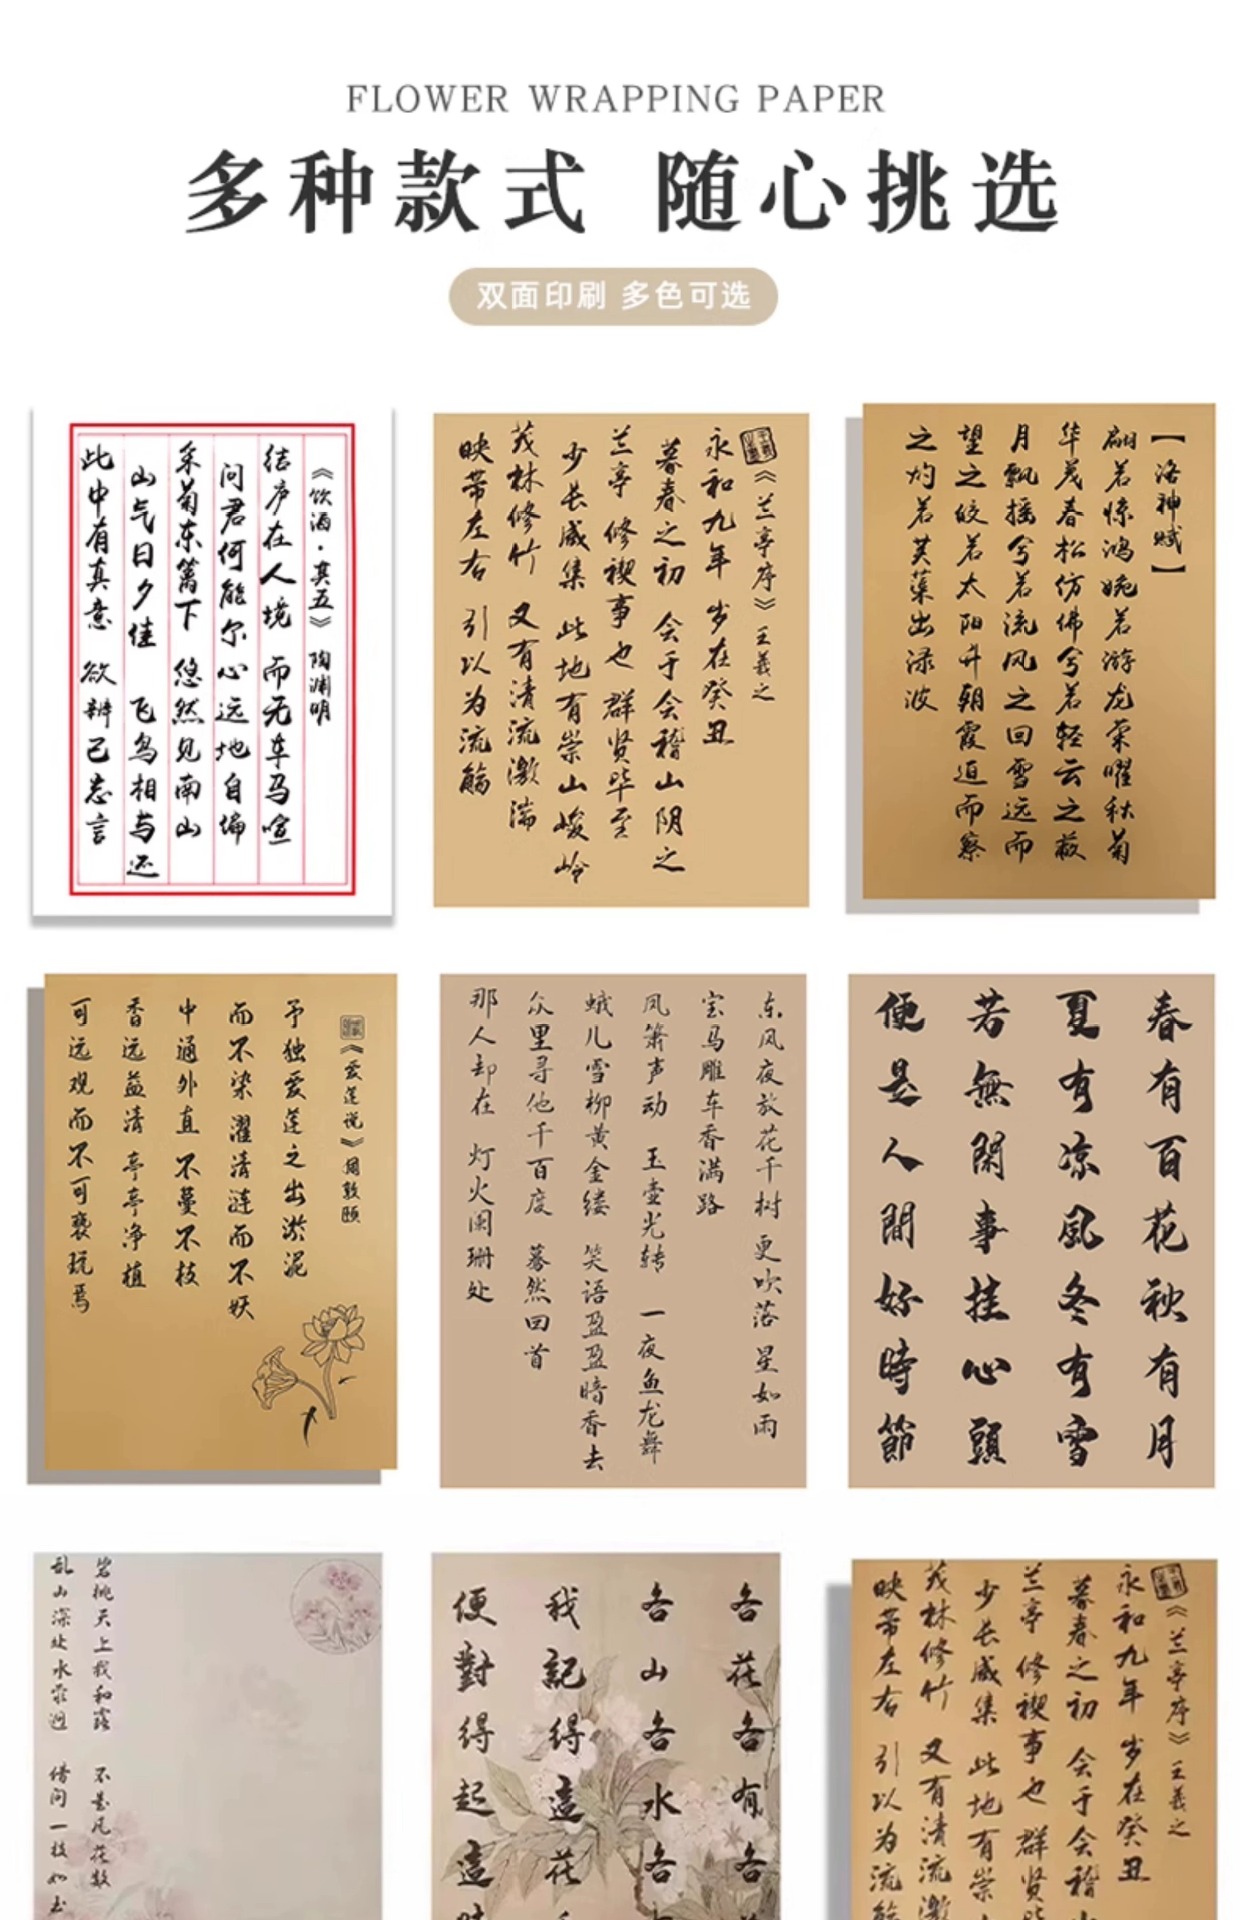 FLOWER WRAPPING PAPER
多种款式 随心挑选
双面印刷 多色可选
《饮酒·其五》 陶渊明
结庐在人境 而无车马喧
问君何能尔 心远地自偏
采菊东篱下 悠然见南山
山气日夕佳 飞鸟相与还
此中有真意 欲辨已忘言
《兰亭序》 王羲之
永和九年 岁在癸丑
暮春之初 会于会稽山阴之
兰亭 修禊事也 群贤毕至
少长咸集 此地有崇山峻岭
茂林修竹 又有清流激湍
映带左右 引以为流觞
【洛神赋】
翩若惊鸿婉若游龙荣曜秋菊
华茂春松仿佛兮若轻云之蔽
月飘摇兮若流风之回雪远而
望之皎若太阳升朝霞迫而察
之灼若芙蕖出渌波
《爱莲说》 周敦颐
予独爱莲之出淤泥
而不染 濯清涟而不妖
中通外直 不蔓不枝
香远益清 亭亭净植
可远观而不可亵玩焉
东风夜放花千树 更吹落 星如雨
宝马雕车香满路
凤箫声动 玉壶光转 一夜鱼龙舞
蛾儿雪柳黄金缕 笑语盈盈暗香去
众里寻他千百度 蓦然回首
那人却在 灯火阑珊处
春有百花秋有月
夏有凉風冬有雪
若無閑事挂心頭
便是人間好時節
碧桃天上栽和露 不是凡花数
乱山深处水萦迴 借问一枝如
各花各有各
各山各水各
我記得這花
便對得起這
《兰亭序》 王羲之
永和九年 岁在癸丑
暮春之初 会于会稽
兰亭 修禊事也 群贤
少长咸集 此地有崇
茂林修竹 又有清流激
映带左右 引以为流觞